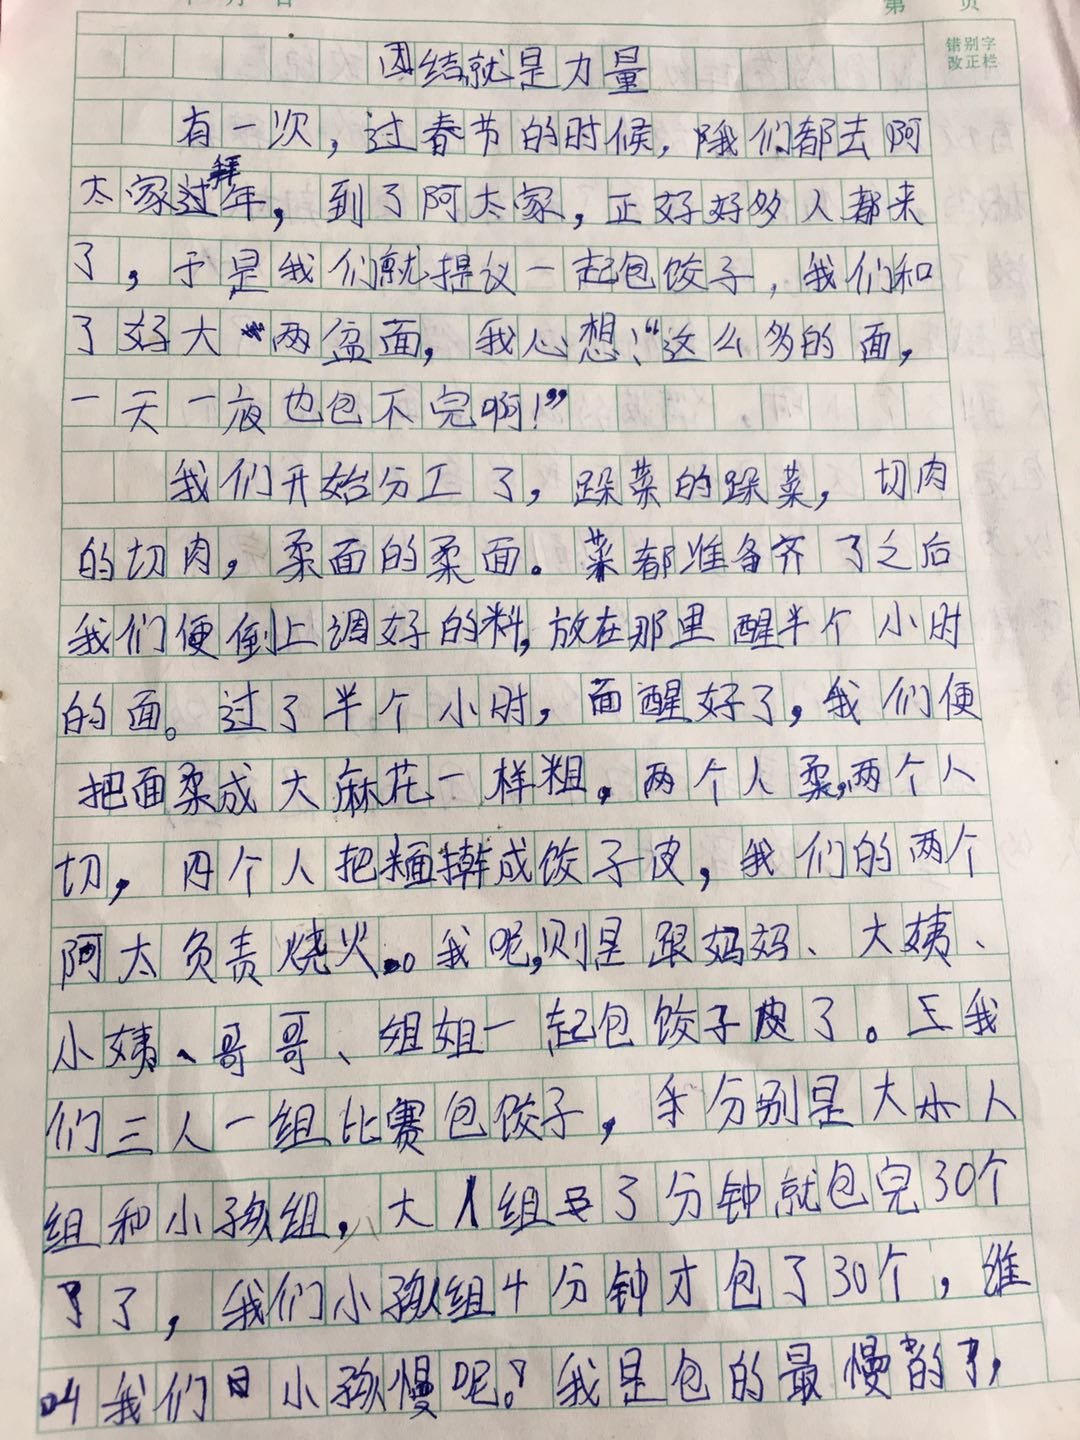 第 页
错别字
改正栏
团结就是力量
有一次，过春节的时候，我们都去阿
太家过拜年，到了阿太家，正好好多人都来
了，于是我们就提议一起包饺子，我们和
了好大两盆面，我心想：“这么多的面，
一天一夜也包不完啊！”
我们开始分工了，跺菜的跺菜，切肉
的切肉，柔面的柔面。菜都准备齐了之后
我们便倒上调好的料，放在那里醒半个小时
的面。过了半个小时，面醒好了，我们便
把面柔成大麻花一样粗，两个人柔，两个人
切，四个人把面擀成饺子皮，我们的两个
阿太负责烧火。我呢，则是跟妈妈、大姨、
小姨、哥哥、姐姐一起包饺子了。我
们三人一组比赛包饺子，分别是大人
组和小孩组，大人组了分钟就包完30个
了，我们小孩组十分钟才包了30个，谁
叫我们小孩慢呢？我是包的最慢的了，